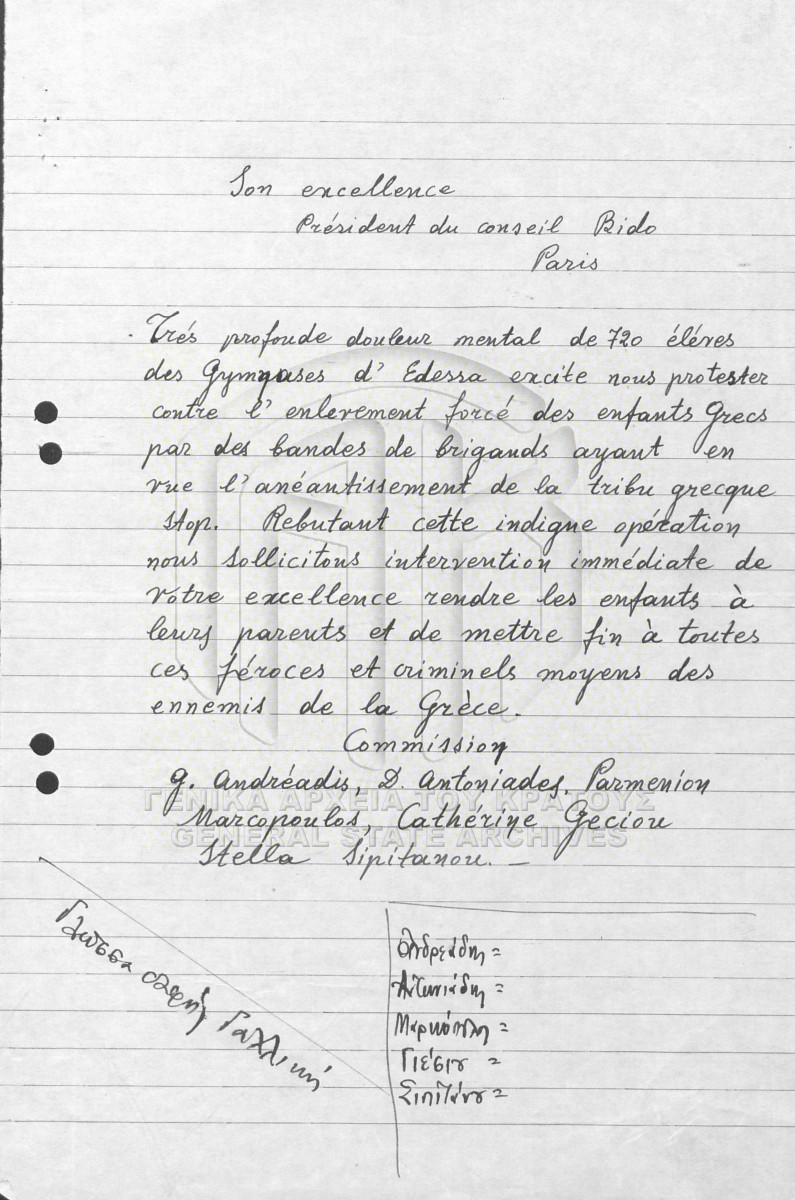 Son excellence
Président du conseil Bido
Paris
Trés profoude douleur mental de 720 éléves
des Gymnases d' Edessa excite nous protester
contre l' enlevement forcé des enfants Grecs
par des bandes de brigands ayant en
vue l'anéantissement de la tribu grecque
stop. Rebutant cette indigne opération
nous sollicitons intervention immédiate de
vôtre excellence rendre les enfants à
leurs parents et de mettre fin à toutes
ces féroces et criminels moyens des
ennemis de la Grèce.
Commission
G. Andréadis, D. Antoniades, Parmenion
ΓΕΝΙΚΑ ΑΡΧΕΙΑ ΤΟΥ ΚΡΑΤΟΥΣ
Marcopoulos, Cathérine Geciou
GENERAL STATE ARCHIVES
Stella Sipitanou. —
Γλώσσα Γαλλική
Ανδρεάδη =
Αντωνιάδη =
Μαρκόπουλου =
Γιέσιου =
Σιπιτάνου =